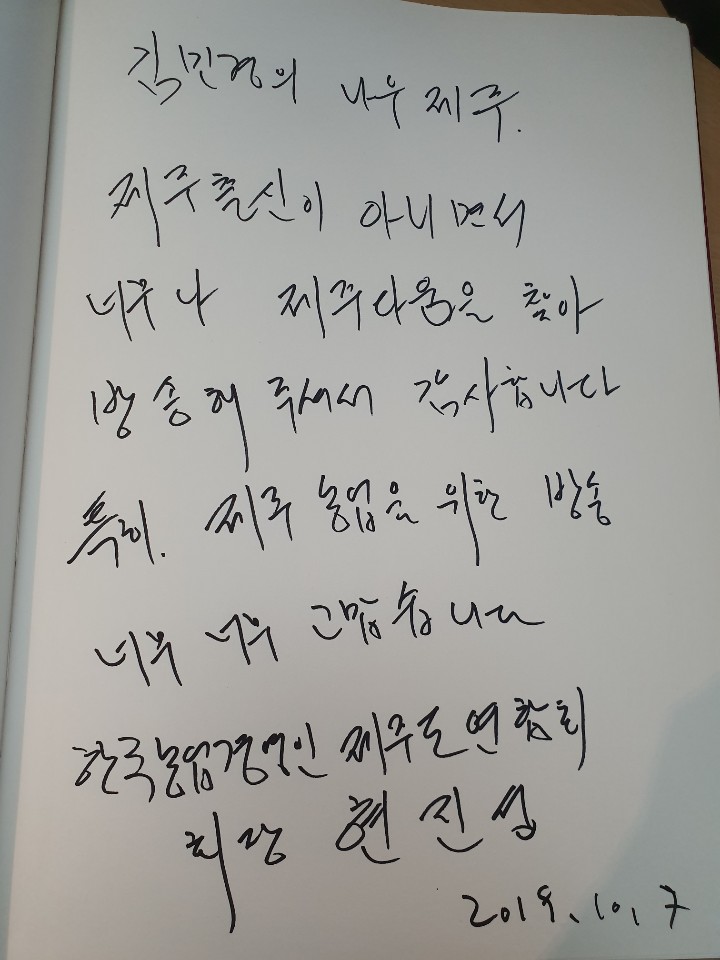 김민경의 나우 제주.
제주출신이 아니면서
너무나 제주다움을 찾아
방송해 주셔서 감사합니다
특히. 제주 농업을 위한 방송
너무 너무 고맙습니다
한국농업경영인 제주도연합회
회장 현진성
2019. 10. 7